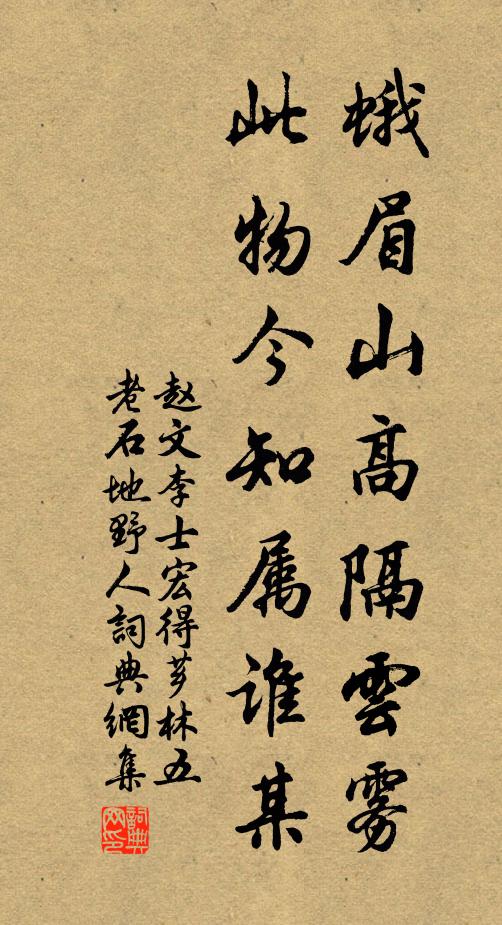 蛾眉山高隔雲雾
此物今知属谁某
赵文李士宏得芗林五
老石地野人詞典網集
詞典
网印